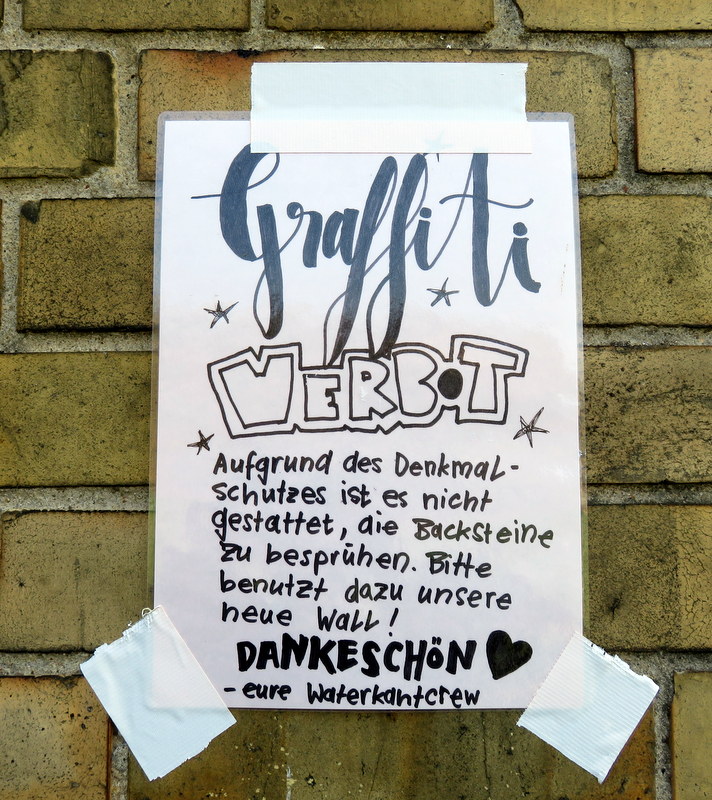 Graffiti
VERBOT
Aufgrund des Denkmal-
schutzes ist es nicht
gestattet, die Backsteine
zu besprühen. Bitte
benutzt dazu unsere
neue Wall!
DANKESCHÖN
- eure Waterkantcrew